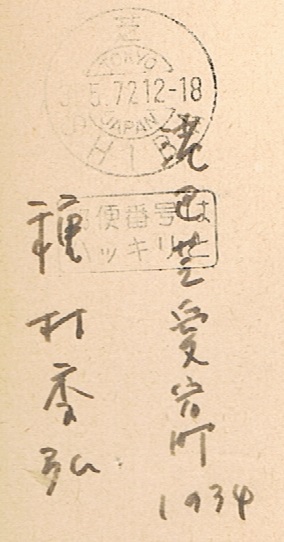 芝
TOKYO
.5.72 12-18
JAPAN
SHIBA
郵便番号は
ハッキリと
港区芝愛宕町
1934
種村季弘